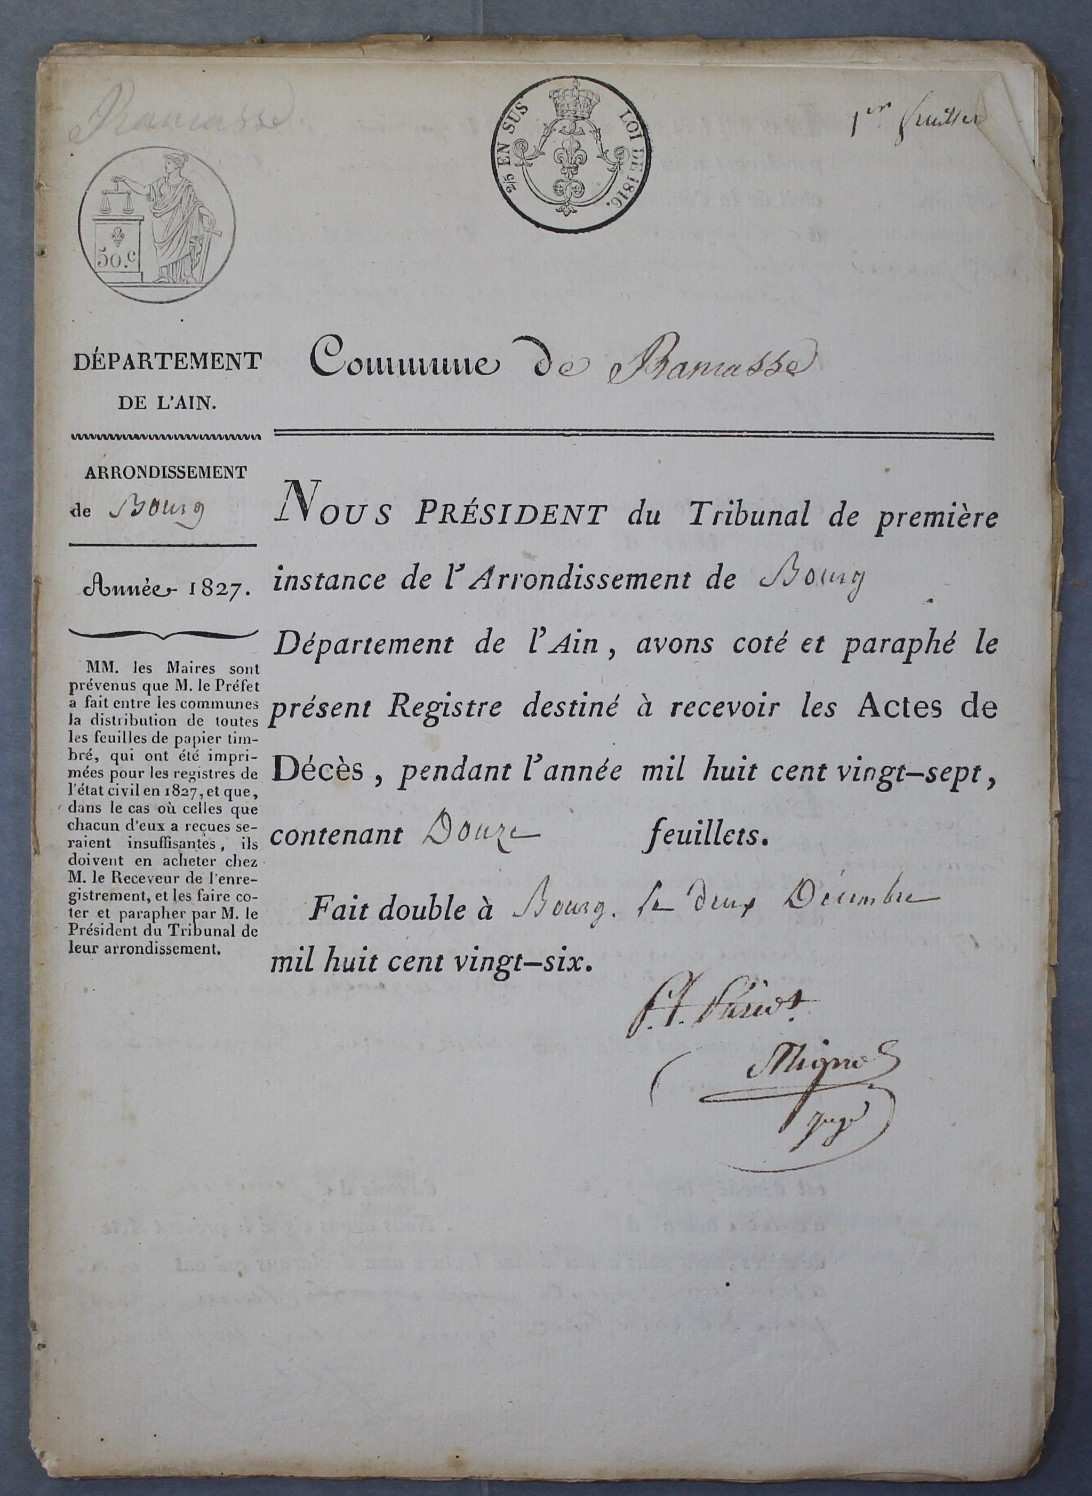 Ramasse.
1er feuillet
2/5 EN SUS LOI DE 1816.
50.c
DÉPARTEMENT
DE L'AIN.
ARRONDISSEMENT
de Bourg
Année 1827.
MM. les Maires sont
prévenus que M. le Préfet
a fait entre les communes
la distribution de toutes
les feuilles de papier tim-
bré, qui ont été impri-
mées pour les registres de
l'état civil en 1827, et que,
dans le cas où celles que
chacun d'eux a reçues se-
raient insuffisantes, ils
doivent en acheter chez
M. le Receveur de l'enre-
gistrement, et les faire co-
ter et parapher par M. le
Président du Tribunal de
leur arrondissement.
Commune de Ramasse
NOUS PRÉSIDENT du Tribunal de première
instance de l'Arrondissement de Bourg
Département de l'Ain, avons coté et paraphé le
présent Registre destiné à recevoir les Actes de
Décès, pendant l'année mil huit cent vingt-sept,
contenant Douze feuillets.
Fait double à Bourg. le deux Décembre
mil huit cent vingt-six.
juge